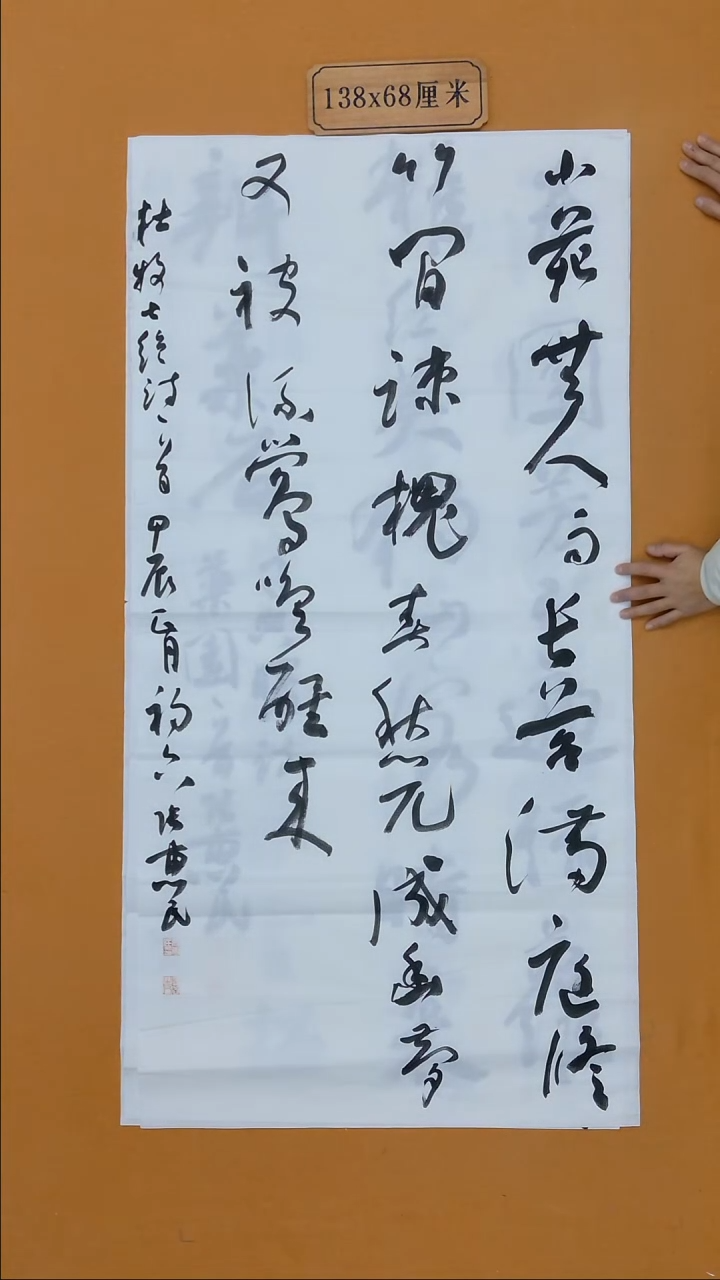 138x68厘米
小苑無人雨長苔滿庭修
竹間疎槐春愁兀成幽夢
又被流鶯喚醒來
杜牧七絕詩一首 甲辰正月初六 張惠民